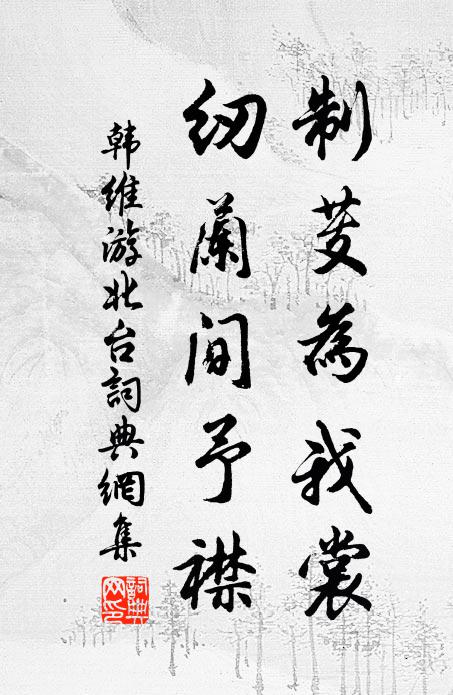 制芰為我裳
紉蘭間予襟
韩维游北台詞典網集
詞典網印